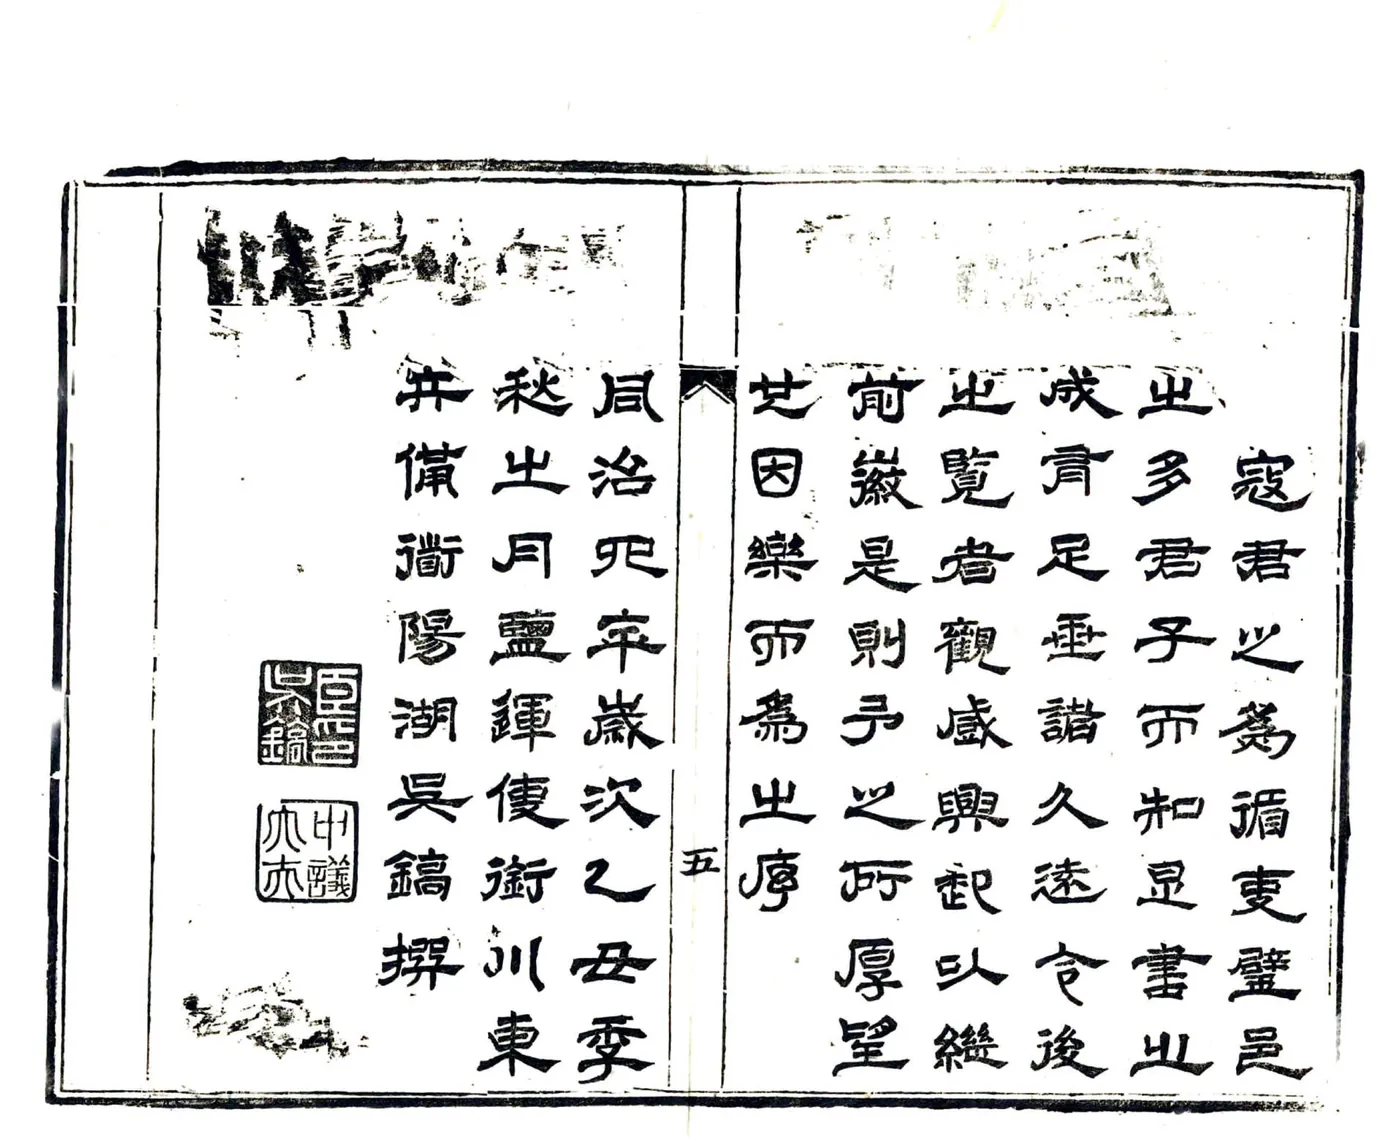 寇君之為循吏璧邑
之多君子而知是書之
成有足垂諸久遠令後
之覽者觀感興起以繼
前徽是則予之所厚望
也因樂而為之序
五
同治四年歲次乙丑季
秋之月鹽運使銜川東
兵備衜陽湖吳鎬撰
臣印吳鎬
中議大夫